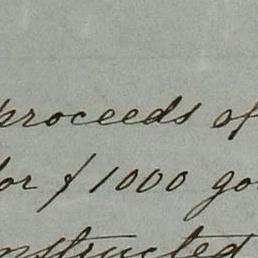 proceeds of
for $1000 go
nstructed